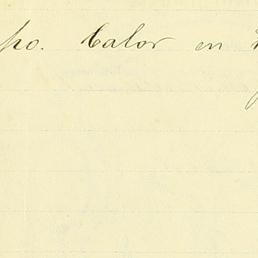 po. Calor en